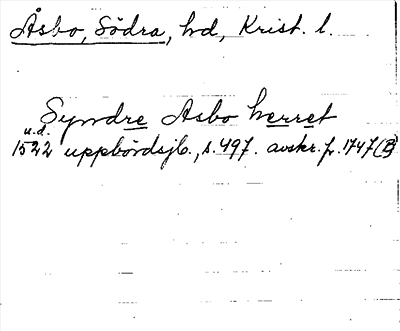 Åsbo, Södra, hd, Krist. l.
Syndre Asbo herret
u.d.
1522 uppbördsjb., s. 497. avskr. fr. 1747 (B)